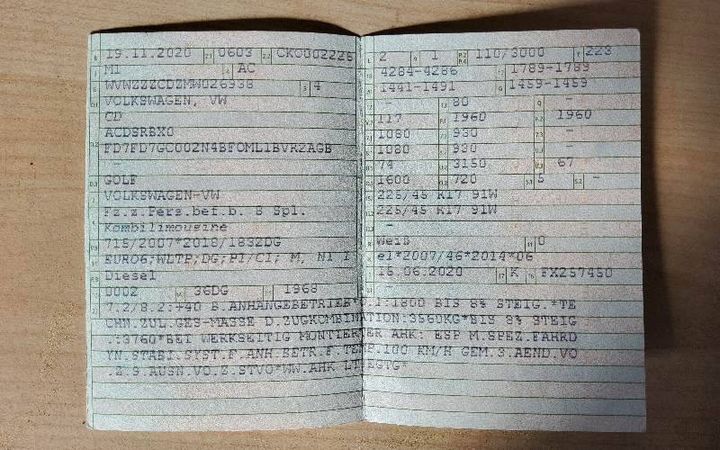 19.11.2020 0603 CK000222
M1 AC
WVWZZZCDZMW026938 4
VOLKSWAGEN, VW
CD
ACDSRBX0
FD7FD7GC002N4BFOML1BVR2AGB
-
GOLF
VOLKSWAGEN-VW
Fz.z.Pers.bef.b. 8 Spl.
Kombilimousine
715/2007*2018/1832DG
EURO6;WLTP;DG;PI/CI; M, N1 I
Diesel
0002 36DG 1968
2 1 110/3000 223
4284-4286 1789-1789
1441-1491 1459-1459
- 80 -
117 1960 1960
1080 930 -
1080 930 -
74 3150 67
1600 720 5 -
225/45 R17 91W
225/45 R17 91W
-
Weiß 0
e1*2007/46*2014*06
16.06.2020 K FX257450
7.2/8.2:+40 B.ANHÄNGEBETRIEB*O.1:1800 BIS 8% STEIG.*TE
CHN.ZUL.GES-MASSE D.ZUGKOMBINATION:3560KG*BIS 8% STEIG
.:3760*BEI WERKSEITIG MONTIERTER AHK: ESP M.SPEZ.FAHRD
YN.STABI.SYST.F.ANH.BETR.F.TEMP.100 KM/H GEM.3.AEND.VO
.Z.9.AUSN.VO.Z.STVO*WW.AHK LT.EGTG*